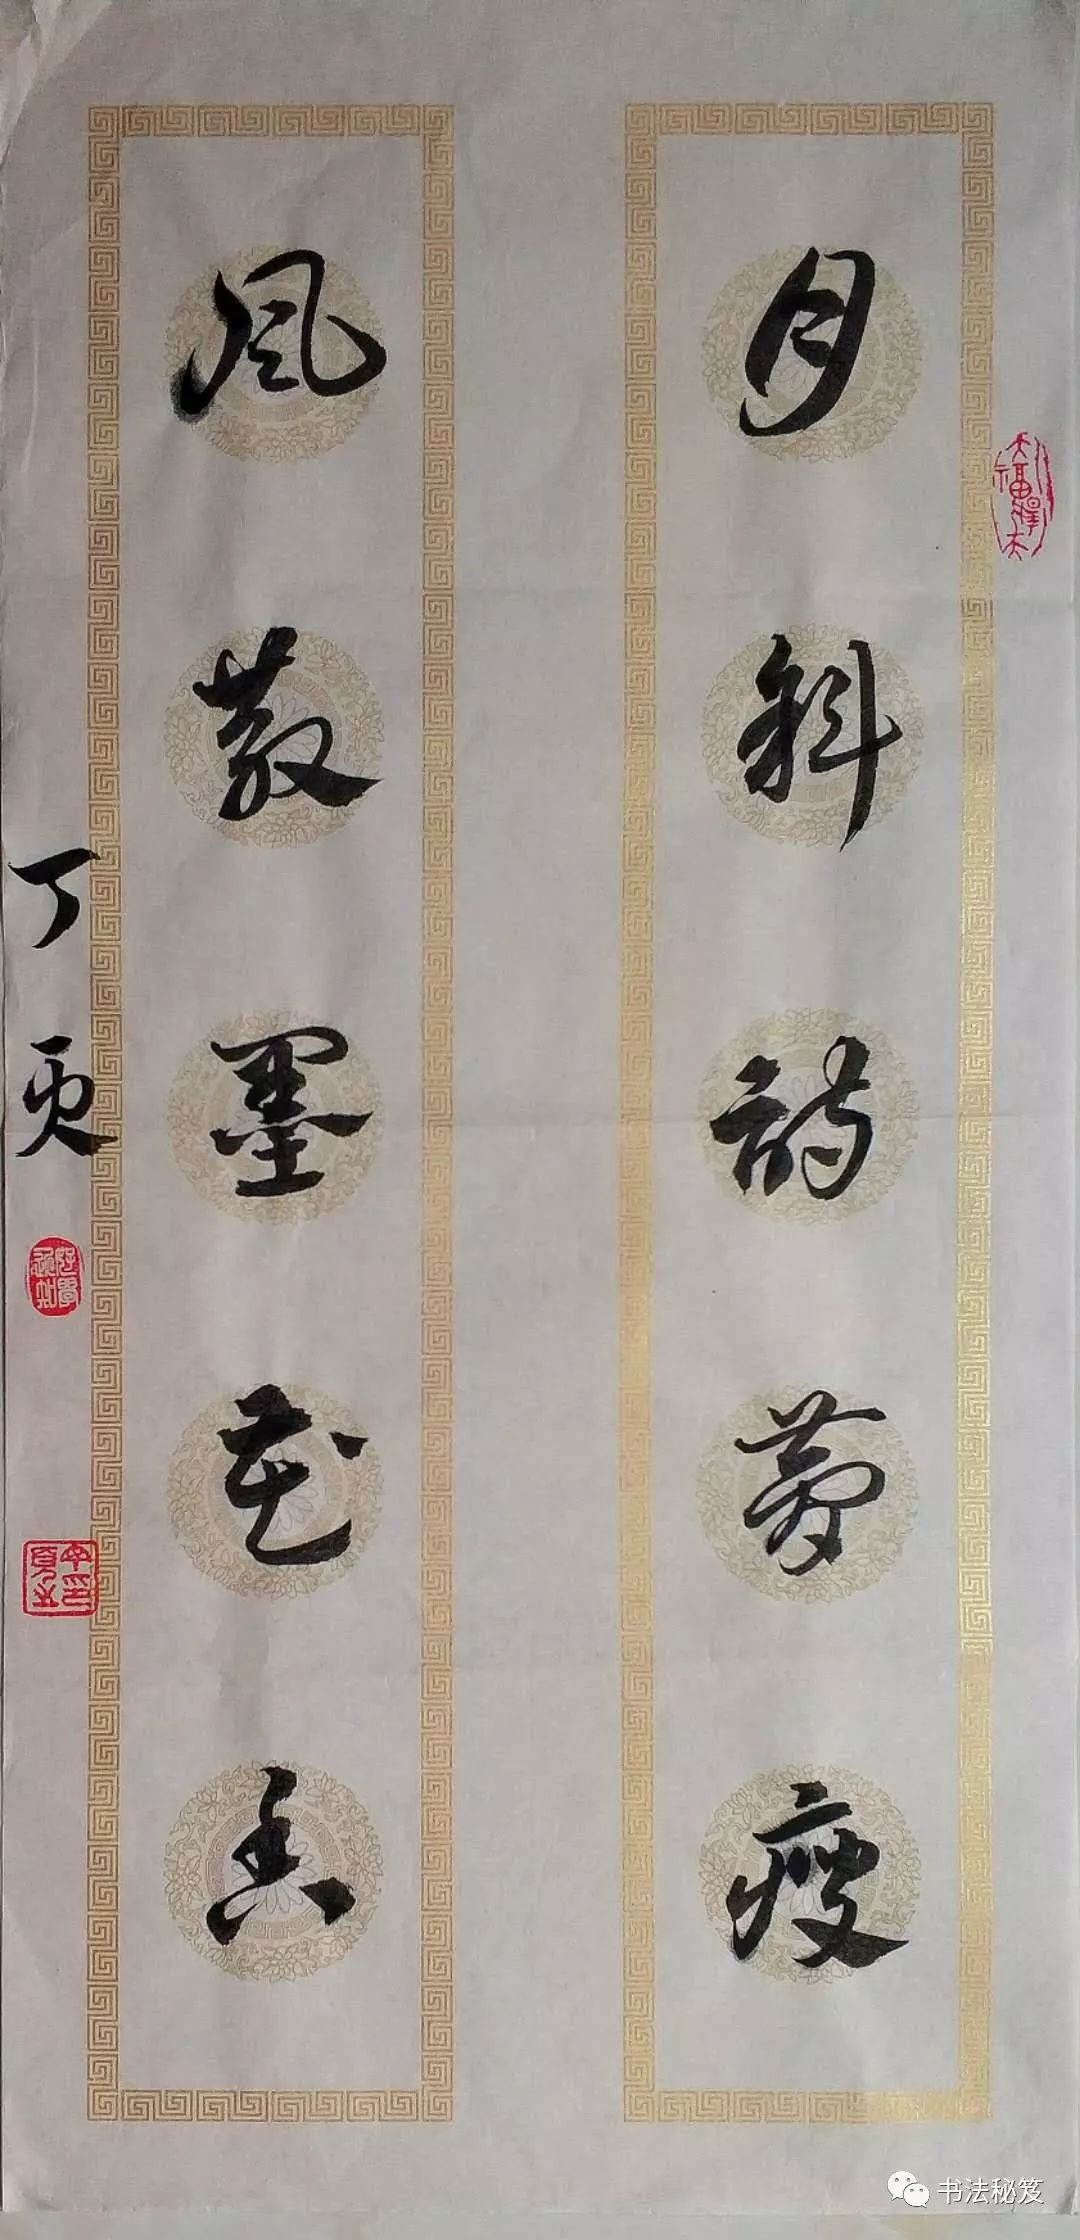 月斜詩夢瘦
風散墨花香
丁酉
书法秘笈